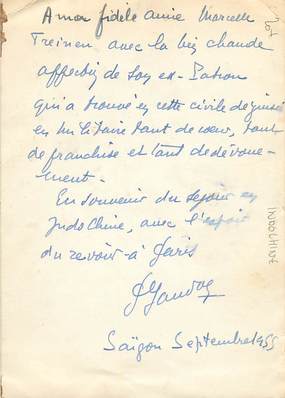 A mon fidèle amie Marcelle
Treinen avec la bien chaude
affection de son ex-Patron
qui a trouvé en cette civile déguisée
en militaire tant de cœur, tant
de franchise et tant de dévoue-
ment.
En souvenir du séjour en
Indochine, avec l'espoir
du revoir à Paris
Saïgon Septembre 1955
INDOCHINE